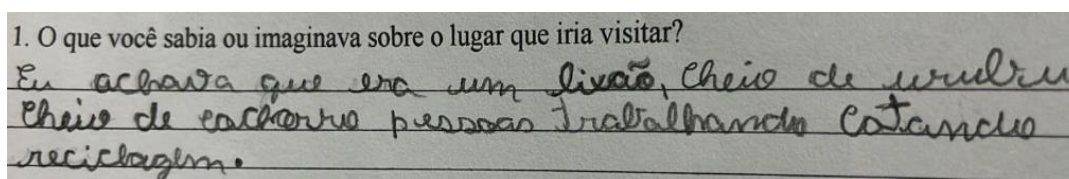 1. O que você sabia ou imaginava sobre o lugar que iria visitar?
Eu achava que era um lixão, cheio de urubu
cheio de cachorro pessoas trabalhando catando
reciclagem.